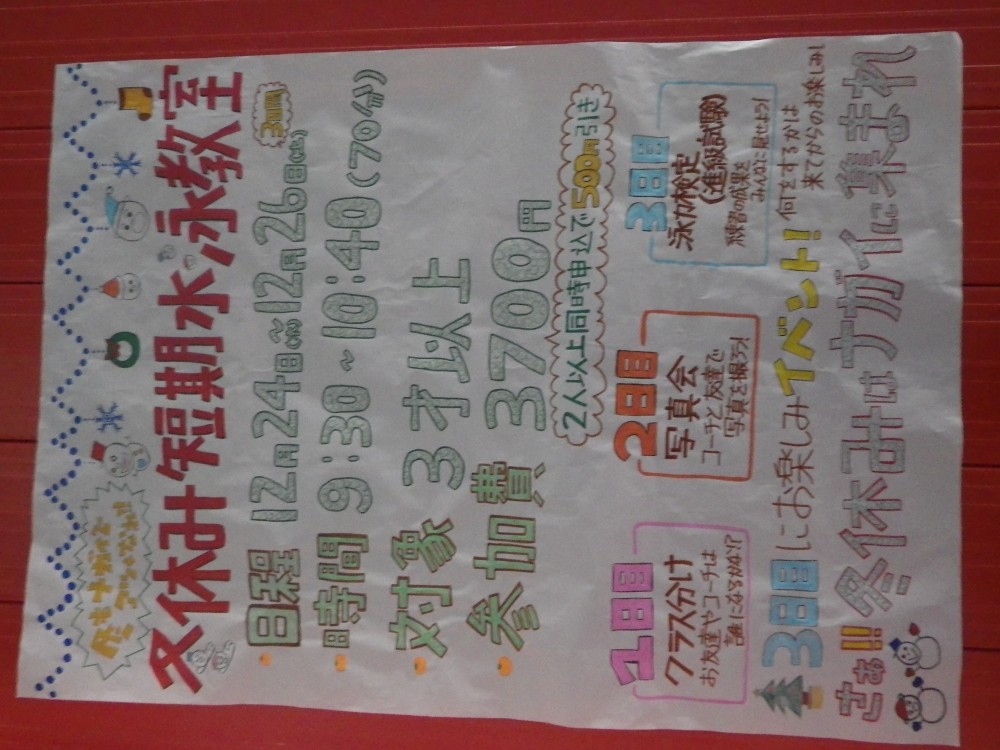 冬休み短期水泳教室
日程 12月24日(木)~12月26日(土) 3日間
時間 9:30~10:40(70分)
対象 3才以上
参加費 3700円
2人以上同時申込で500円引き
1日目
クラス分け
お友達やコーチは
誰になるかな!?
2日目
写真会
コーチと友達で
写真を撮ろう!
3日目
泳力検定
(進級試験)
練習の成果を
みんなに見せよう!
3日間にお楽しみイベント!何をするかは
来てからのお楽しみ!
さぁ!!冬休みはナガイに集まれ